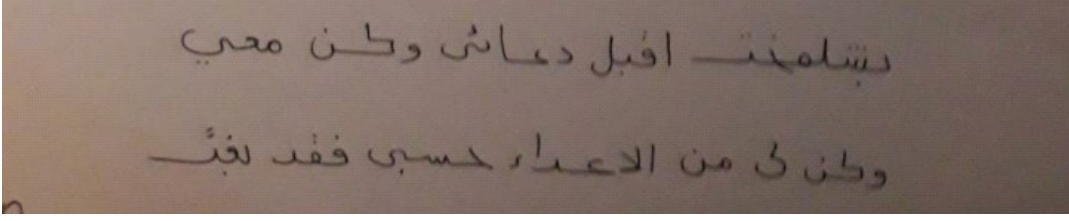 بشلمخت اقبل دعائى وكن معي
وكن لى من الاعداء حسبى فقد بغت